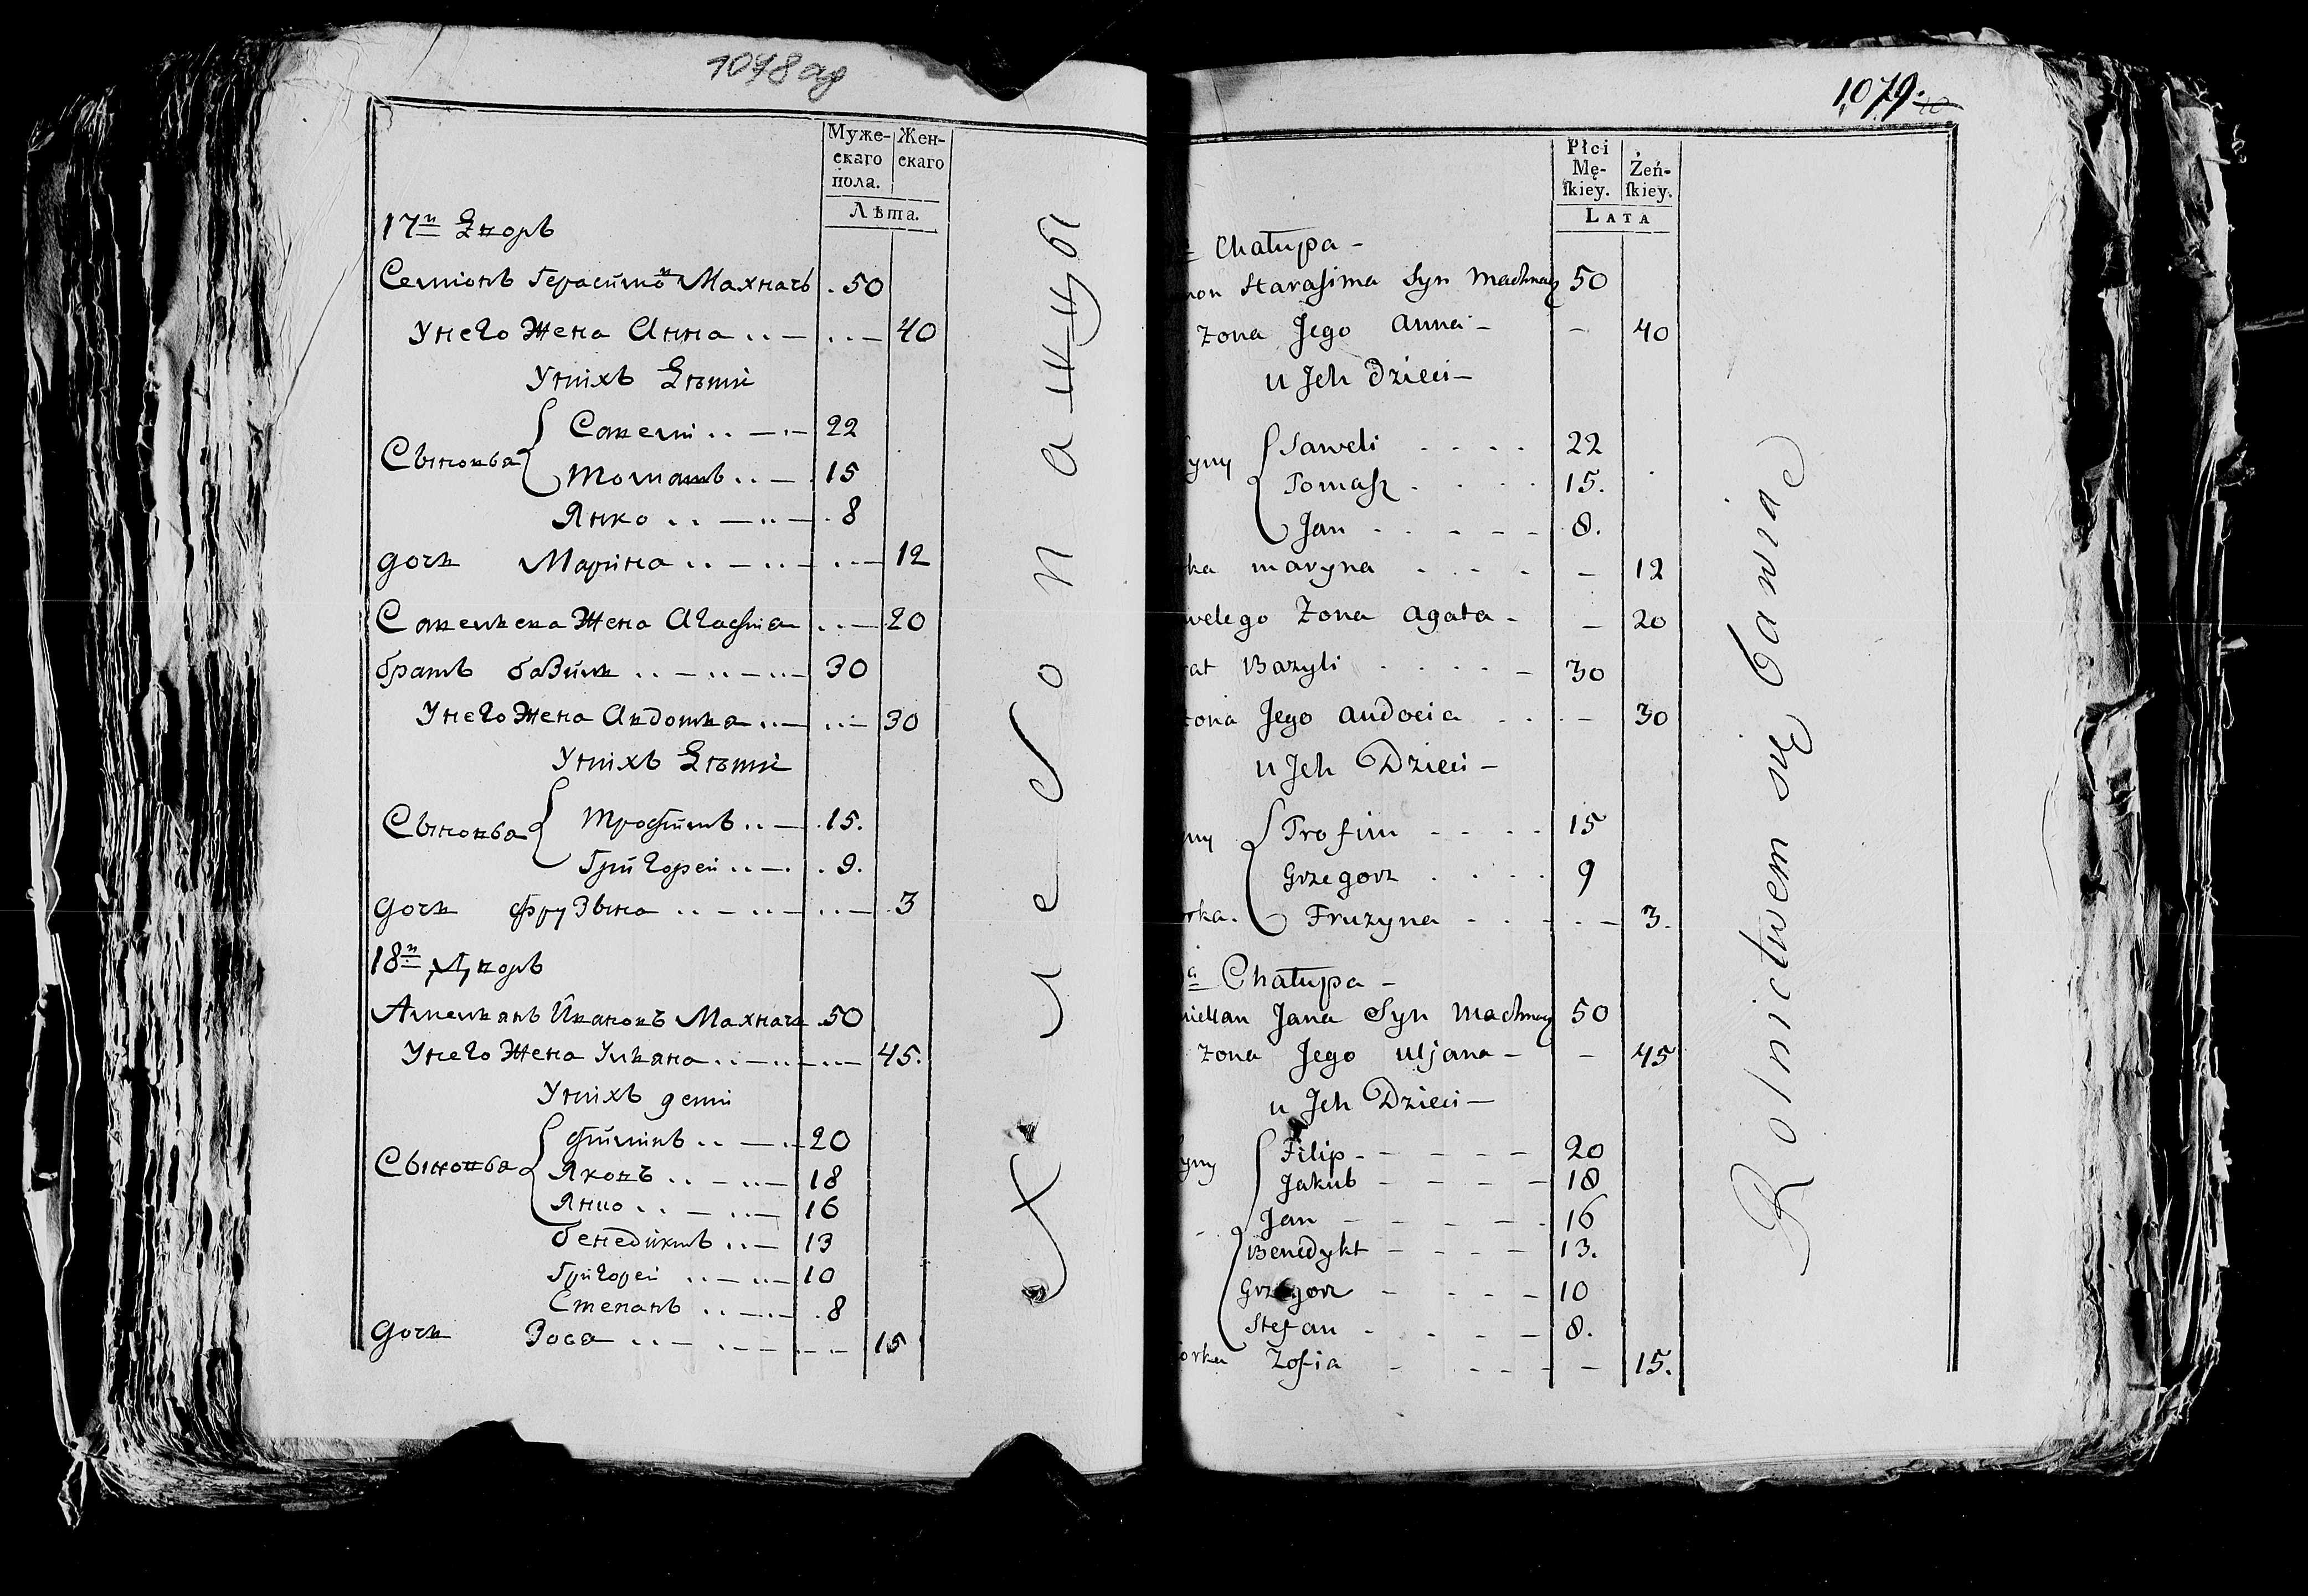 1078 об
Муже-
скаго
пола.
Жен-
скаго
Лѣта.
17й Дворъ
Семіонъ Герасимов Махначь . 50
У него жена Анна .. — ... — 40
У них дѣти
Сыновья { Савели .. — .— 22
Томашъ .. — 15
Янко .. — .. — . 8
дочь Марина .. — .. — ... — 12
Савельева жена Агафия ... — 20
братъ базиль .. — .. — .. — 30
У него жена Авдотья .. — ... — 30
У нихъ дѣти
Сыновья { Трофимъ .. — . 15.
Григорей .. — . . 9.
дочь Фрузына .. — .. — ... — 3
18й Дворъ
Амельянъ Ивановъ Махначь . 50
У него жена Ульяна .. — .. — ... — 45.
У нихъ дети
Сыновья { Филипъ .. — .. 20
Яковъ .. — .. — 18
Янко .. — .. — 16
бенедиктъ .. — 13
Григорей .. — .. — 10
Степанъ .. — .. — . 8
дочь Зося .. — .. — .. — 15
Хлебопашцы
1079.
Płci
Mę-
ſkiey.
Żeń-
ſkiey.
LATA
Chałupa —
mon Harasima Syn Machnacz 50
żona Jego Anna — — 40
u Jch Dzieci —
yny { Saweli . . . . 22
Tomaſz . . . . 15.
Jan . . . — — 8.
rka maryna . . . . — 12
welego żona Agata — — 20
rat Bazyli . . . . — 30
żona Jego Audocia . . . — 30
u Jch Dzieci —
yny { Trofim — . . . 15
Grzegorz . . . . 9
rka. — Fruzyna — . . . — 3.
a Chałupa —
miellan Jana Syn Machnacz 50
żona Jego Uljana — — 45
u Jch Dzieci —
yny { Filip — — — — — 20
Jakub — — — — 18
Jan — — — — . 16
Benedykt — — — — 13.
Grzegorz — — — — 10
Stefan . . . — 8.
orka Zofia — . — — — 15.
Rolnictwem się bawią